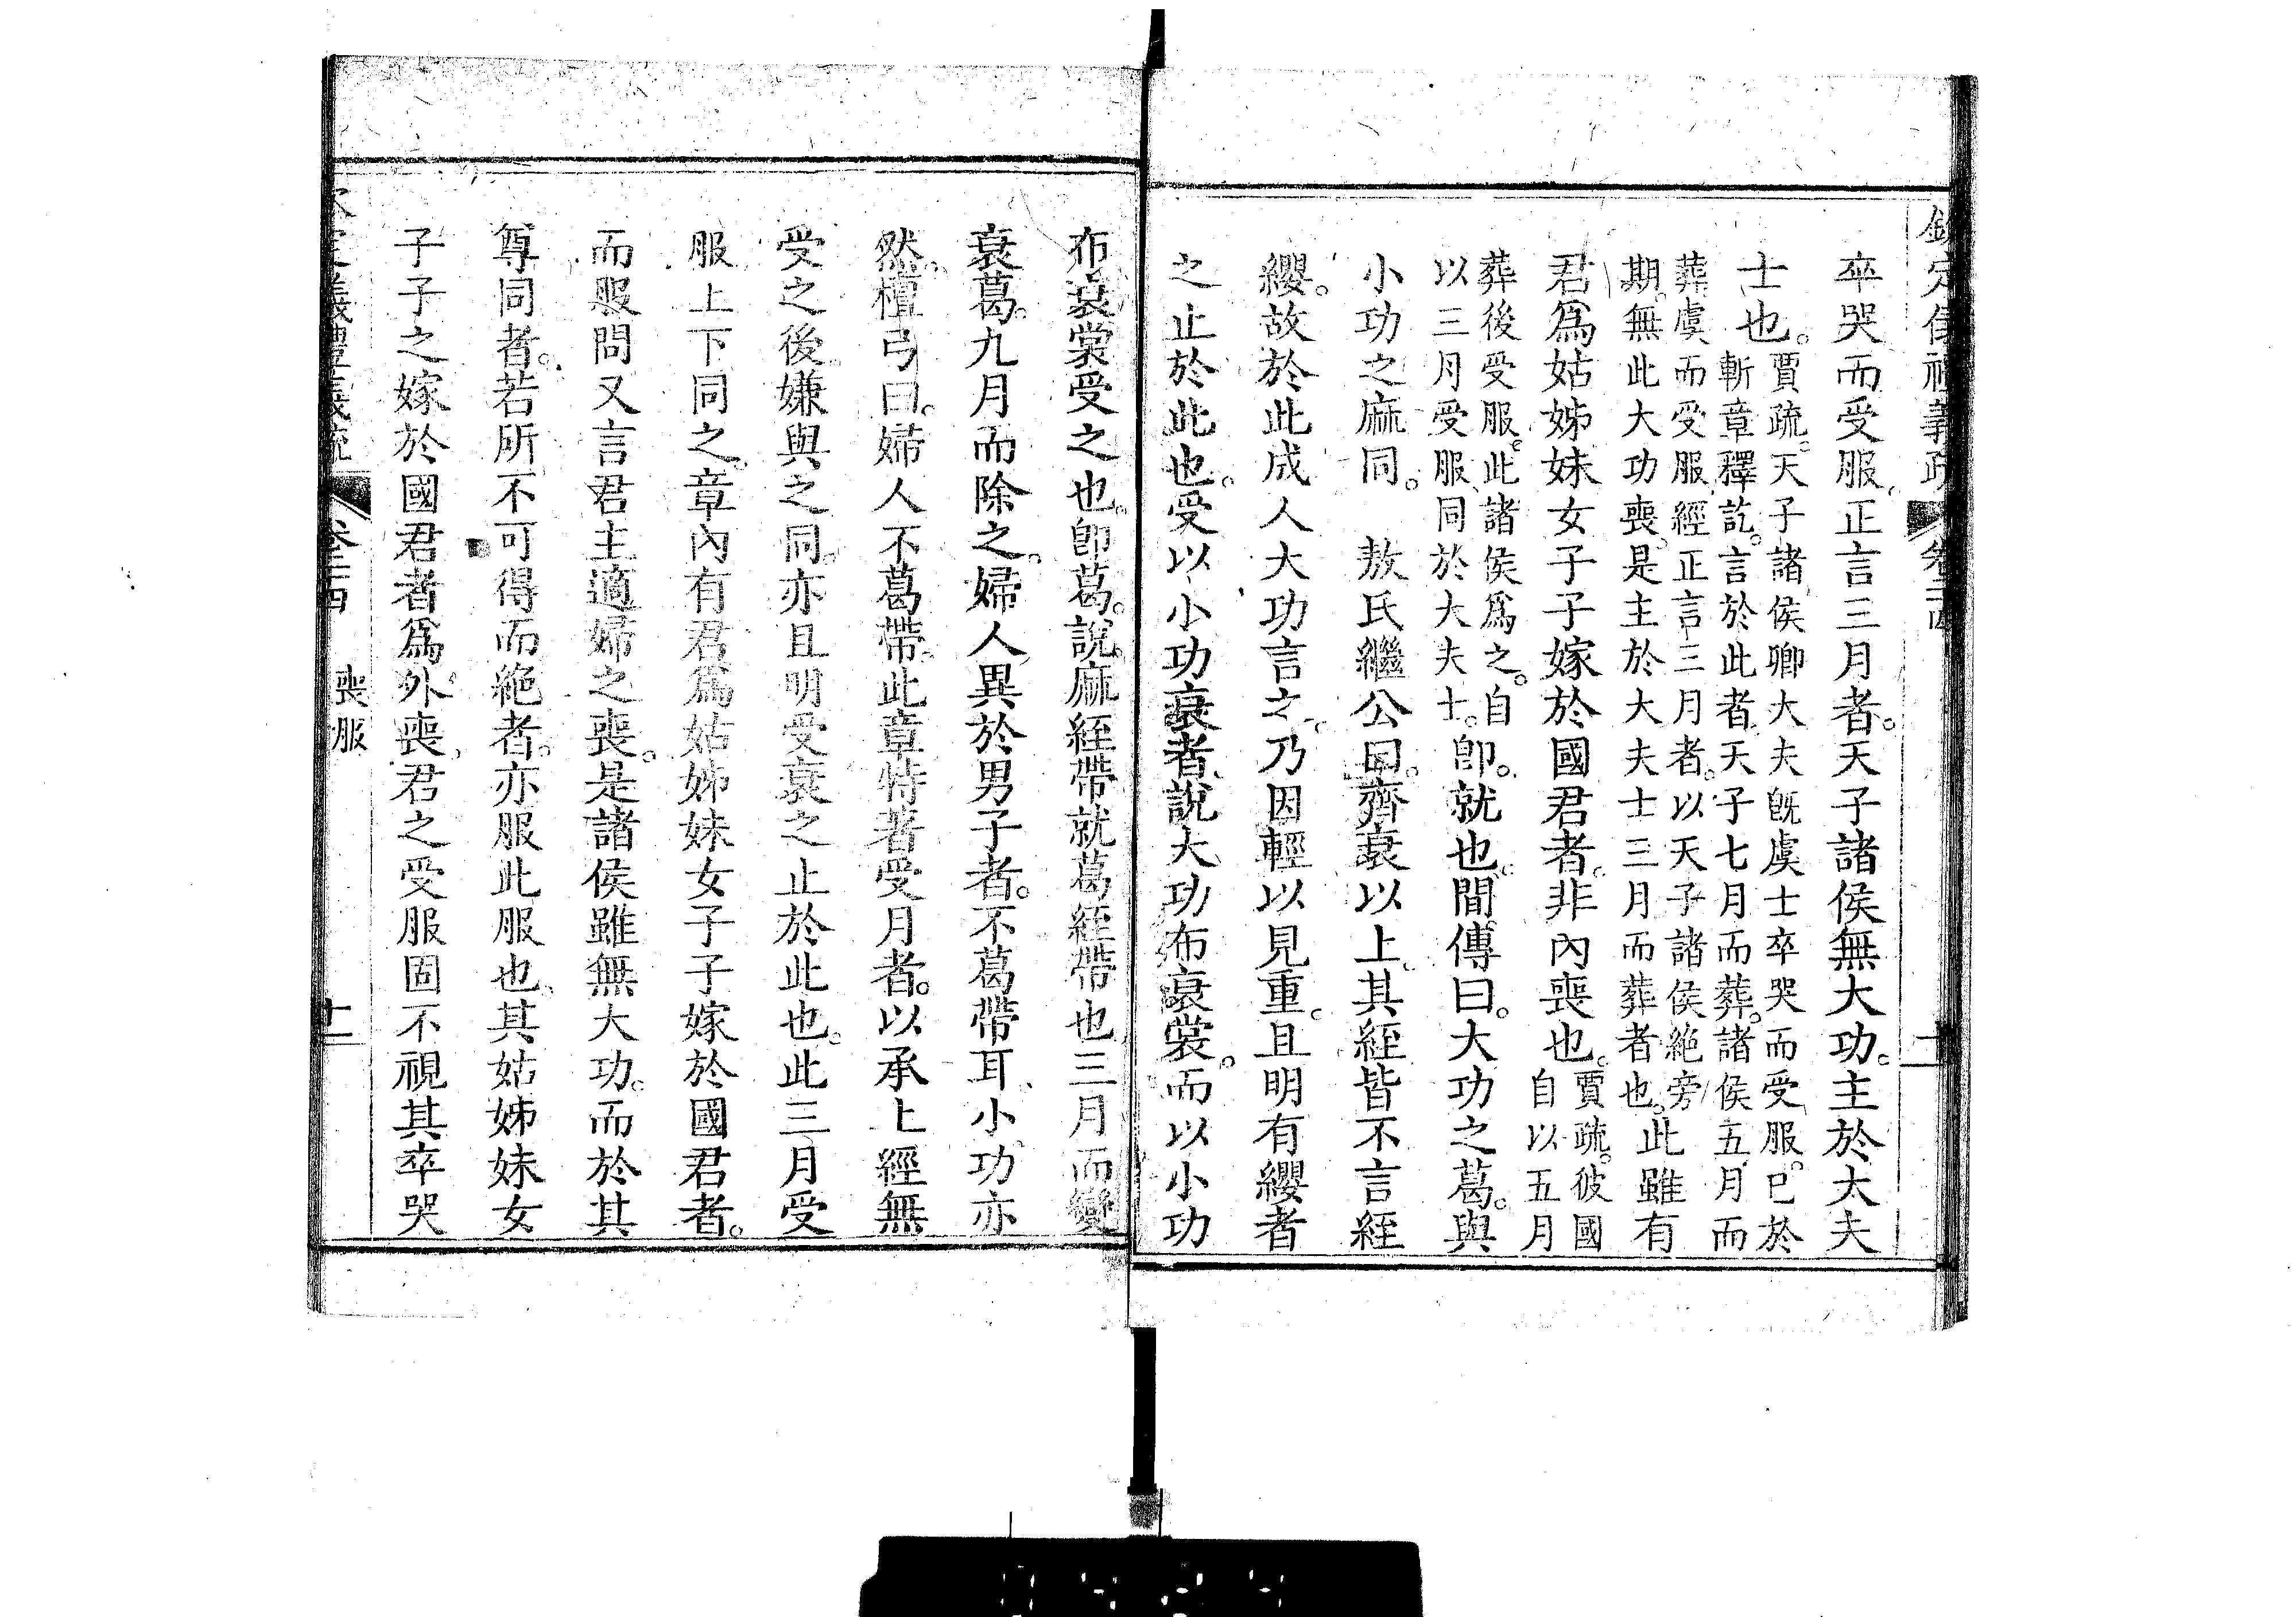 欽定儀禮義疏 卷二十四 十
卒哭而受服、正言三月者。天子諸侯無大功。主於大夫
士也。賈疏。天子諸侯卿大夫旣虞士卒哭而受服。已於
斬章釋訖。言於此者天子七月而葬。諸侯五月而
葬虞而受服、經正言三月者。以天子諸侯絶旁
期。無此大功喪。是主於大夫士三月而葬者也。此雖有
君爲姑姊妹女子子嫁於國君者。非內喪也。賈疏。彼國
自以五月
葬後受服。此諸侯爲之。自
以三月受服、同於大夫士。卽。就也。間傳曰。大功之葛。與
小功之麻同。 敖氏繼公曰。齊衰以上。其絰皆不言絰
纓。故於此成人大功言之、乃因輕以見重。且明有纓者
之止於此也。受以小功衰者、說大功布衰裳。而以小功
布衰裳受之也。卽葛。說麻絰帶就葛絰帶也、三月而變
衰葛。九月而除之。婦人異於男子者。不葛帶耳、小功亦
然。檀弓曰。婦人不葛帶。此章特著受月者。以承上經無
受之後。嫌與之同。亦且明受衰之止於此也。此三月受
服上下同之。章內有君爲姑姊妹女子子嫁於國君者。
而服問又言君主適婦之喪。是諸侯雖無大功。而於其
尊同者。若所不可得而絶者。亦服此服也、其姑姊妹女
子子之嫁於國君者爲外喪、君之受服固不視其卒哭
欽定儀禮義疏 卷二十四 喪服 十一